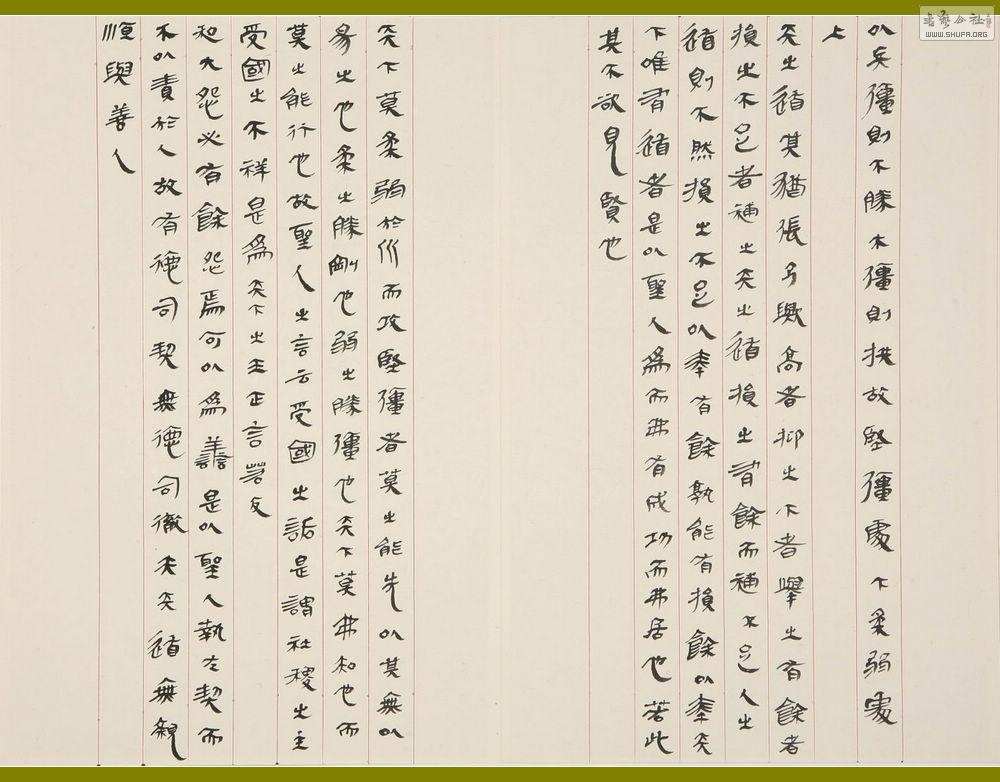 以兵彊則不勝木彊則拱故堅彊處下柔弱處
上
天之道其猶張弓與高者抑之下者舉之有餘者
損之不足者補之天之道損之有餘而補不足人之
道則不然損之不足以奉有餘孰能有損餘以奉天
下唯有道者是以聖人為而弗有成功而弗居也若此
其不欲見賢也
天下莫柔弱於水而攻堅彊者莫之能先以其無以
易之也柔之勝剛也弱之勝彊也天下莫弗知也而
莫之能行也故聖人之言云受國之詬是謂社稷之主
受國之不祥是為天下之主正言若反
和大怨必有餘怨焉可以為善是以聖人執左契而
不以責於人故有德司契無德司徹夫天道無親
順與善人
書藝公社
WWW.SHUFA.ORG